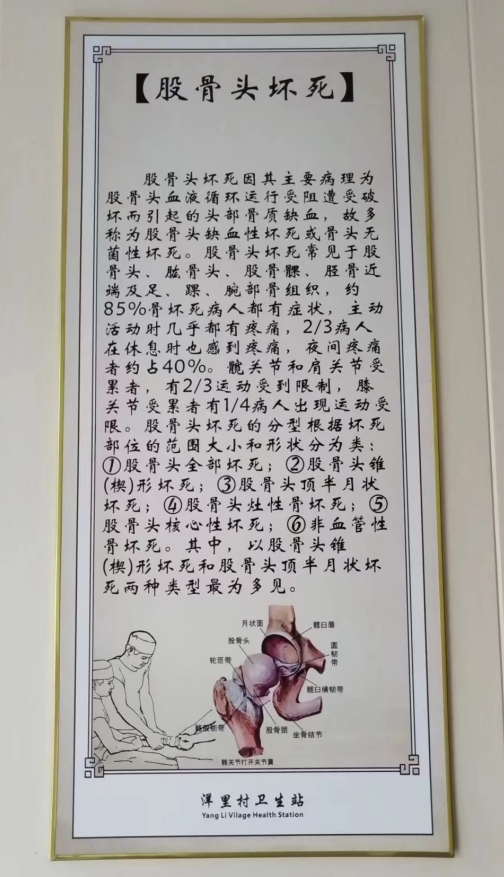 【股骨头坏死】
股骨头坏死因其主要病理为
股骨头血液循环运行受阻遭受破
坏而引起的头部骨质缺血，故多
称为股骨头缺血性坏死或骨头无
菌性坏死。股骨头坏死常见于股
骨头、肱骨头、股骨髁、胫骨近
端及足、踝、腕部骨组织，约
85%骨坏死病人都有症状，主动
活动时几乎都有疼痛，2/3病人
在休息时也感到疼痛，夜间疼痛
者约占40%。髋关节和肩关节受
累者，有2/3运动受到限制，膝
关节受累者有1/4病人出现运动受
限。股骨头坏死的分型根据坏死
部位的范围大小和形状分为类：
①股骨头全部坏死；②股骨头锥
(楔)形坏死；③股骨头顶半月状
坏死；④股骨头灶性骨坏死；⑤
股骨头核心性坏死；⑥非血管性
骨坏死。其中，以股骨头锥
(楔)形坏死和股骨头顶半月状坏
死两种类型最为多见。
月状面
髋臼唇
股骨头
圆韧带
轮匝带
髋臼横韧带
髂股韧带
股骨颈
坐骨结节
髋关节打开关节囊
洋里村卫生站
Yang Li Vilage Health Station